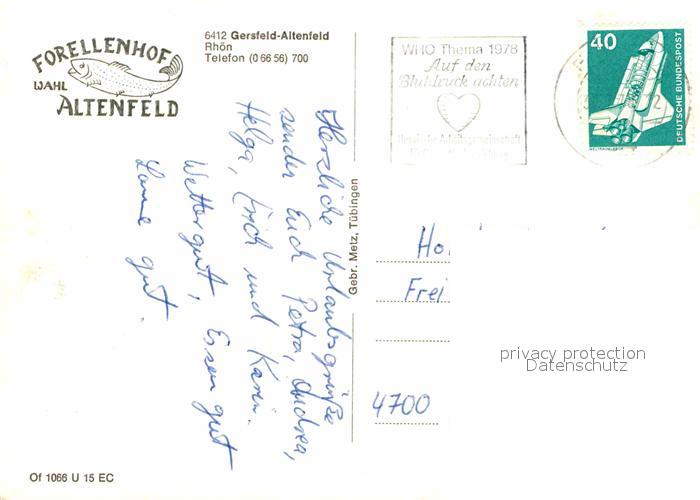 FORELLENHOF
WAHL
ALTENFELD
6412 Gersfeld-Altenfeld
Rhön
Telefon (0 66 56) 700
WHO Thema 1978
Auf den
Blutdruck achten
40
DEUTSCHE BUNDESPOST
Herzliche Urlaubsgrüße
senden Euch Petra, Andrea,
Helga, Erich und Karin.
Wetter gut, Essen gut
Laune gut.
Gebr. Metz, Tübingen
Ho
Frei
4700
privacy protection
Datenschutz
Of 1066 U 15 EC